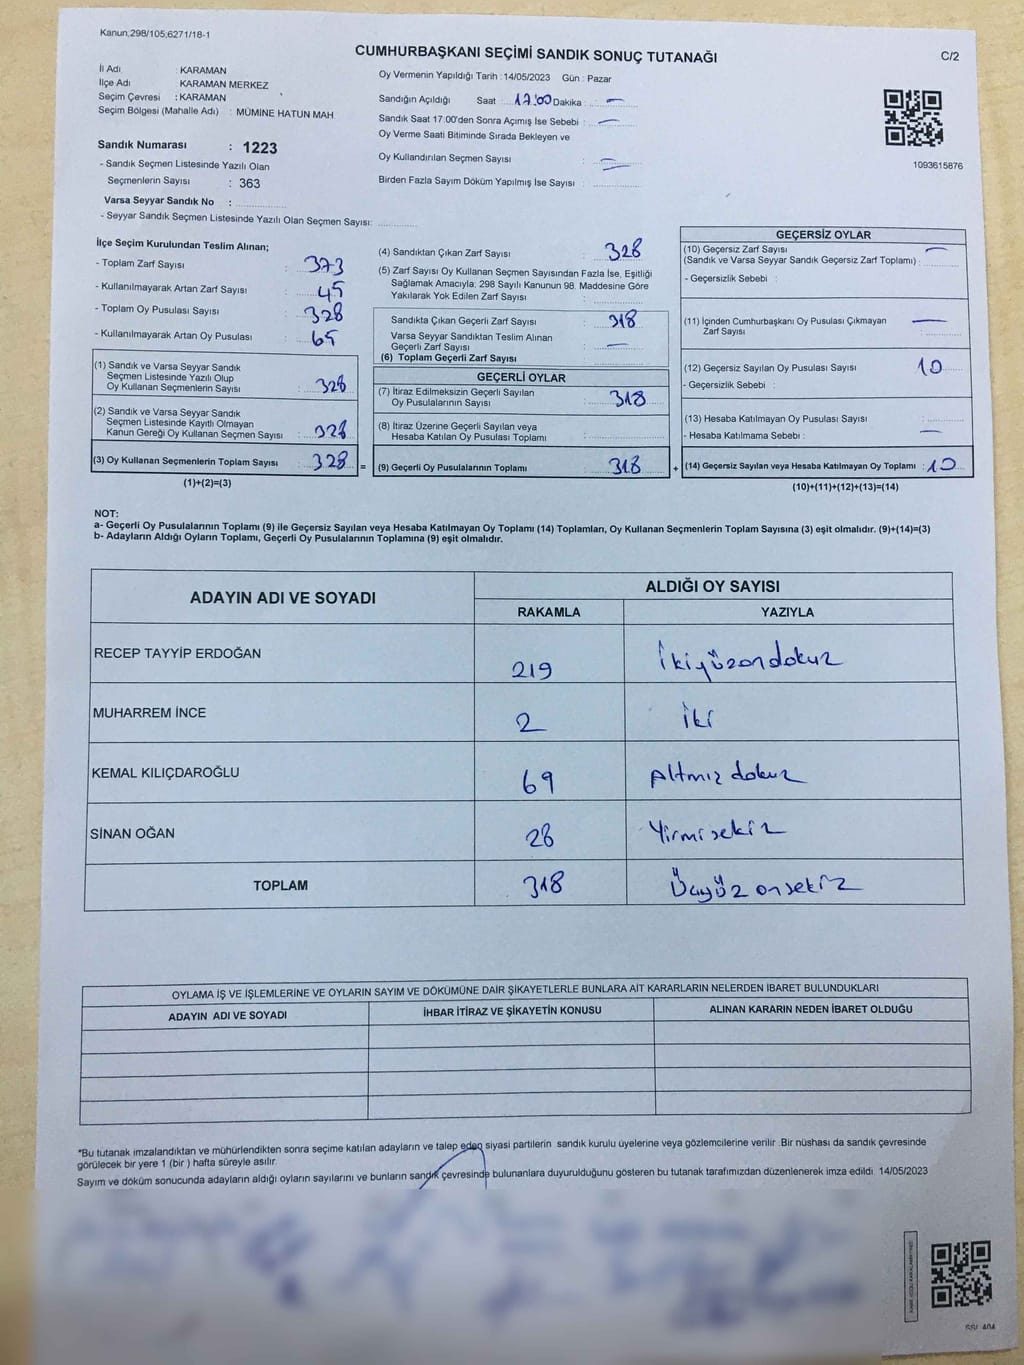 Kanun;298/105;6271/18-1
CUMHURBAŞKANI SEÇİMİ SANDIK SONUÇ TUTANAĞI
C/2
İl Adı : KARAMAN
İlçe Adı : KARAMAN MERKEZ
Seçim Çevresi : KARAMAN
Seçim Bölgesi (Mahalle Adı) : MÜMİNE HATUN MAH
Sandık Numarası : 1223
- Sandık Seçmen Listesinde Yazılı Olan
Seçmenlerin Sayısı : 363
Varsa Seyyar Sandık No :
- Seyyar Sandık Seçmen Listesinde Yazılı Olan Seçmen Sayısı:
Oy Vermenin Yapıldığı Tarih : 14/05/2023 Gün : Pazar
Sandığın Açıldığı Saat : 17:00 Dakika : —
Sandık Saat 17:00'den Sonra Açımış İse Sebebi : —
Oy Verme Saati Bitiminde Sırada Bekleyen ve
Oy Kullandırılan Seçmen Sayısı : —
Birden Fazla Sayım Döküm Yapılmış İse Sayısı : —
1093615876
İlçe Seçim Kurulundan Teslim Alınan;
- Toplam Zarf Sayısı : 373
- Kullanılmayarak Artan Zarf Sayısı : 45
- Toplam Oy Pusulası Sayısı : 328
- Kullanılmayarak Artan Oy Pusulası : 65
(1) Sandık ve Varsa Seyyar Sandık
Seçmen Listesinde Yazılı Olup
Oy Kullanan Seçmenlerin Sayısı : 328
(2) Sandık ve Varsa Seyyar Sandık
Seçmen Listesinde Kayıtlı Olmayan
Kanun Gereği Oy Kullanan Seçmen Sayısı : 328
(3) Oy Kullanan Seçmenlerin Toplam Sayısı : 328 =
(1)+(2)=(3)
(4) Sandıktan Çıkan Zarf Sayısı : 328
(5) Zarf Sayısı Oy Kullanan Seçmen Sayısından Fazla İse, Eşitliği
Sağlamak Amacıyla; 298 Sayılı Kanunun 98. Maddesine Göre
Yakılarak Yok Edilen Zarf Sayısı :
Sandıkta Çıkan Geçerli Zarf Sayısı : 318
Varsa Seyyar Sandıktan Teslim Alınan
Geçerli Zarf Sayısı : —
(6) Toplam Geçerli Zarf Sayısı
GEÇERLİ OYLAR
(7) İtiraz Edilmeksizin Geçerli Sayılan
Oy Pusulalarının Sayısı : 318
(8) İtiraz Üzerine Geçerli Sayılan veya
Hesaba Katılan Oy Pusulası Toplamı :
(9) Geçerli Oy Pusulalarının Toplamı 318 +
GEÇERSİZ OYLAR
(10) Geçersiz Zarf Sayısı —
(Sandık ve Varsa Seyyar Sandık Geçersiz Zarf Toplamı) :
- Geçersizlik Sebebi :
(11) İçinden Cumhurbaşkanı Oy Pusulası Çıkmayan —
Zarf Sayısı
(12) Geçersiz Sayılan Oy Pusulası Sayısı 10
- Geçersizlik Sebebi :
(13) Hesaba Katılmayan Oy Pusulası Sayısı :
- Hesaba Katılmama Sebebi : —
(14) Geçersiz Sayılan veya Hesaba Katılmayan Oy Toplamı : 10
(10)+(11)+(12)+(13)=(14)
NOT:
a- Geçerli Oy Pusulalarının Toplamı (9) ile Geçersiz Sayılan veya Hesaba Katılmayan Oy Toplamı (14) Toplamları, Oy Kullanan Seçmenlerin Toplam Sayısına (3) eşit olmalıdır. (9)+(14)=(3)
b- Adayların Aldığı Oyların Toplamı, Geçerli Oy Pusulalarının Toplamına (9) eşit olmalıdır.
ADAYIN ADI VE SOYADI
ALDIĞI OY SAYISI
RAKAMLA YAZIYLA
RECEP TAYYİP ERDOĞAN 219 İkiyüzondokuz
MUHARREM İNCE 2 İki
KEMAL KILIÇDAROĞLU 69 Altmız dokuz
SİNAN OĞAN 28 Yirmisekiz
TOPLAM 318 Üçyüz onsekiz
OYLAMA İŞ VE İŞLEMLERİNE VE OYLARIN SAYIM VE DÖKÜMÜNE DAİR ŞİKAYETLERLE BUNLARA AİT KARARLARIN NELERDEN İBARET BULUNDUKLARI
ADAYIN ADI VE SOYADI İHBAR İTİRAZ VE ŞİKAYETİN KONUSU ALINAN KARARIN NEDEN İBARET OLDUĞU
*Bu tutanak imzalandıktan ve mühürlendikten sonra seçime katılan adayların ve talep eden siyasi partilerin sandık kurulu üyelerine veya gözlemcilerine verilir .Bir nüshası da sandık çevresinde
görülecek bir yere 1 (bir ) hafta süreyle asılır.
Sayım ve döküm sonucunda adayların aldığı oyların sayılarını ve bunların sandık çevresinde bulunanlara duyurulduğunu gösteren bu tutanak tarafımızdan düzenlenerek imza edildi. 14/05/2023